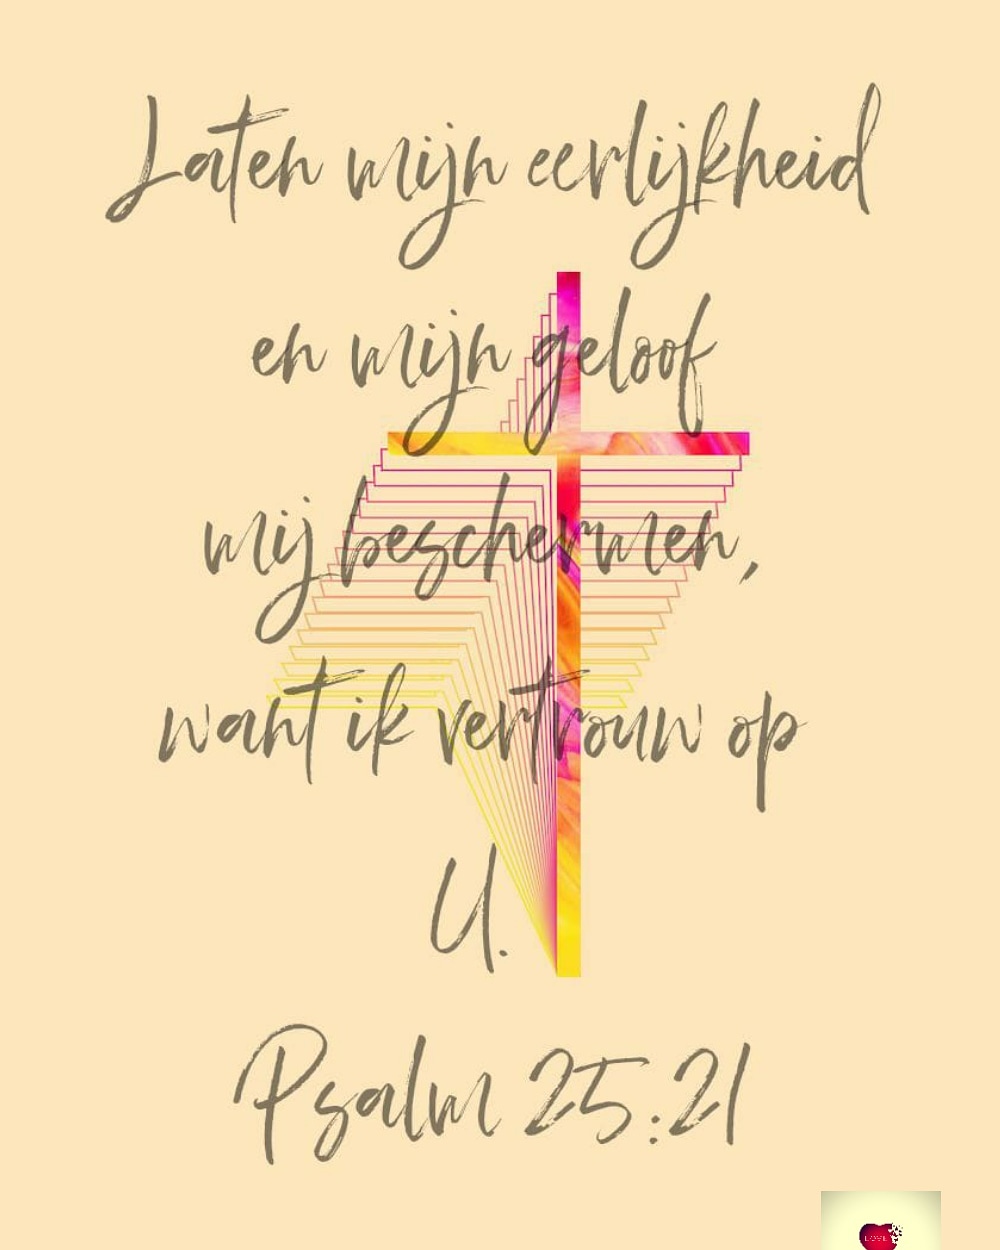 Laten mijn eerlijkheid
en mijn geloof
mij beschermen,
want ik vertrouw op
U.
Psalm 25:21
LOVE